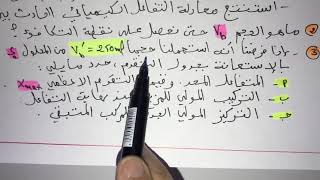 استنتج معادلة التفاعل الكيميائي الحادث
ماهو الحجم V حين نحصل على نقطة التكافؤ؟
إذا فرضنا أننا استعملنا حجما V'=250ml من المحلول
بالإستعانة بجدول التقدم، حدد مايلي:
أ- المتفاعل المحد، وقيمة التقدم الأعظمي Xmax
ب- التركيب المولي للمزيج عند نهاية التفاعل
ج- التركيز المولي المتبقي